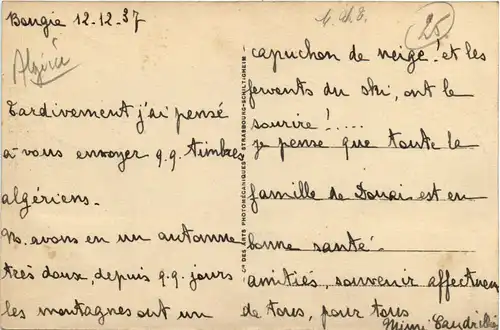 Bougie 12-12-37
Algérie
Tardivement j'ai pensé
à vous envoyer q.q. timbres
algériens.
Ns. avons eu un automne
très doux, depuis q.q. jours
les montagnes ont un
25
capuchon de neige! et les
fervents du ski, ont le
sourire!.....
je pense que toute la
famille de Douai est en
bonne santé.
amitiés, souvenir affectueux
de tous, pour tous
Mimi
Cie DES ARTS PHOTOMÉCANIQUES - STRASBOURG-SCHILTIGHEIM